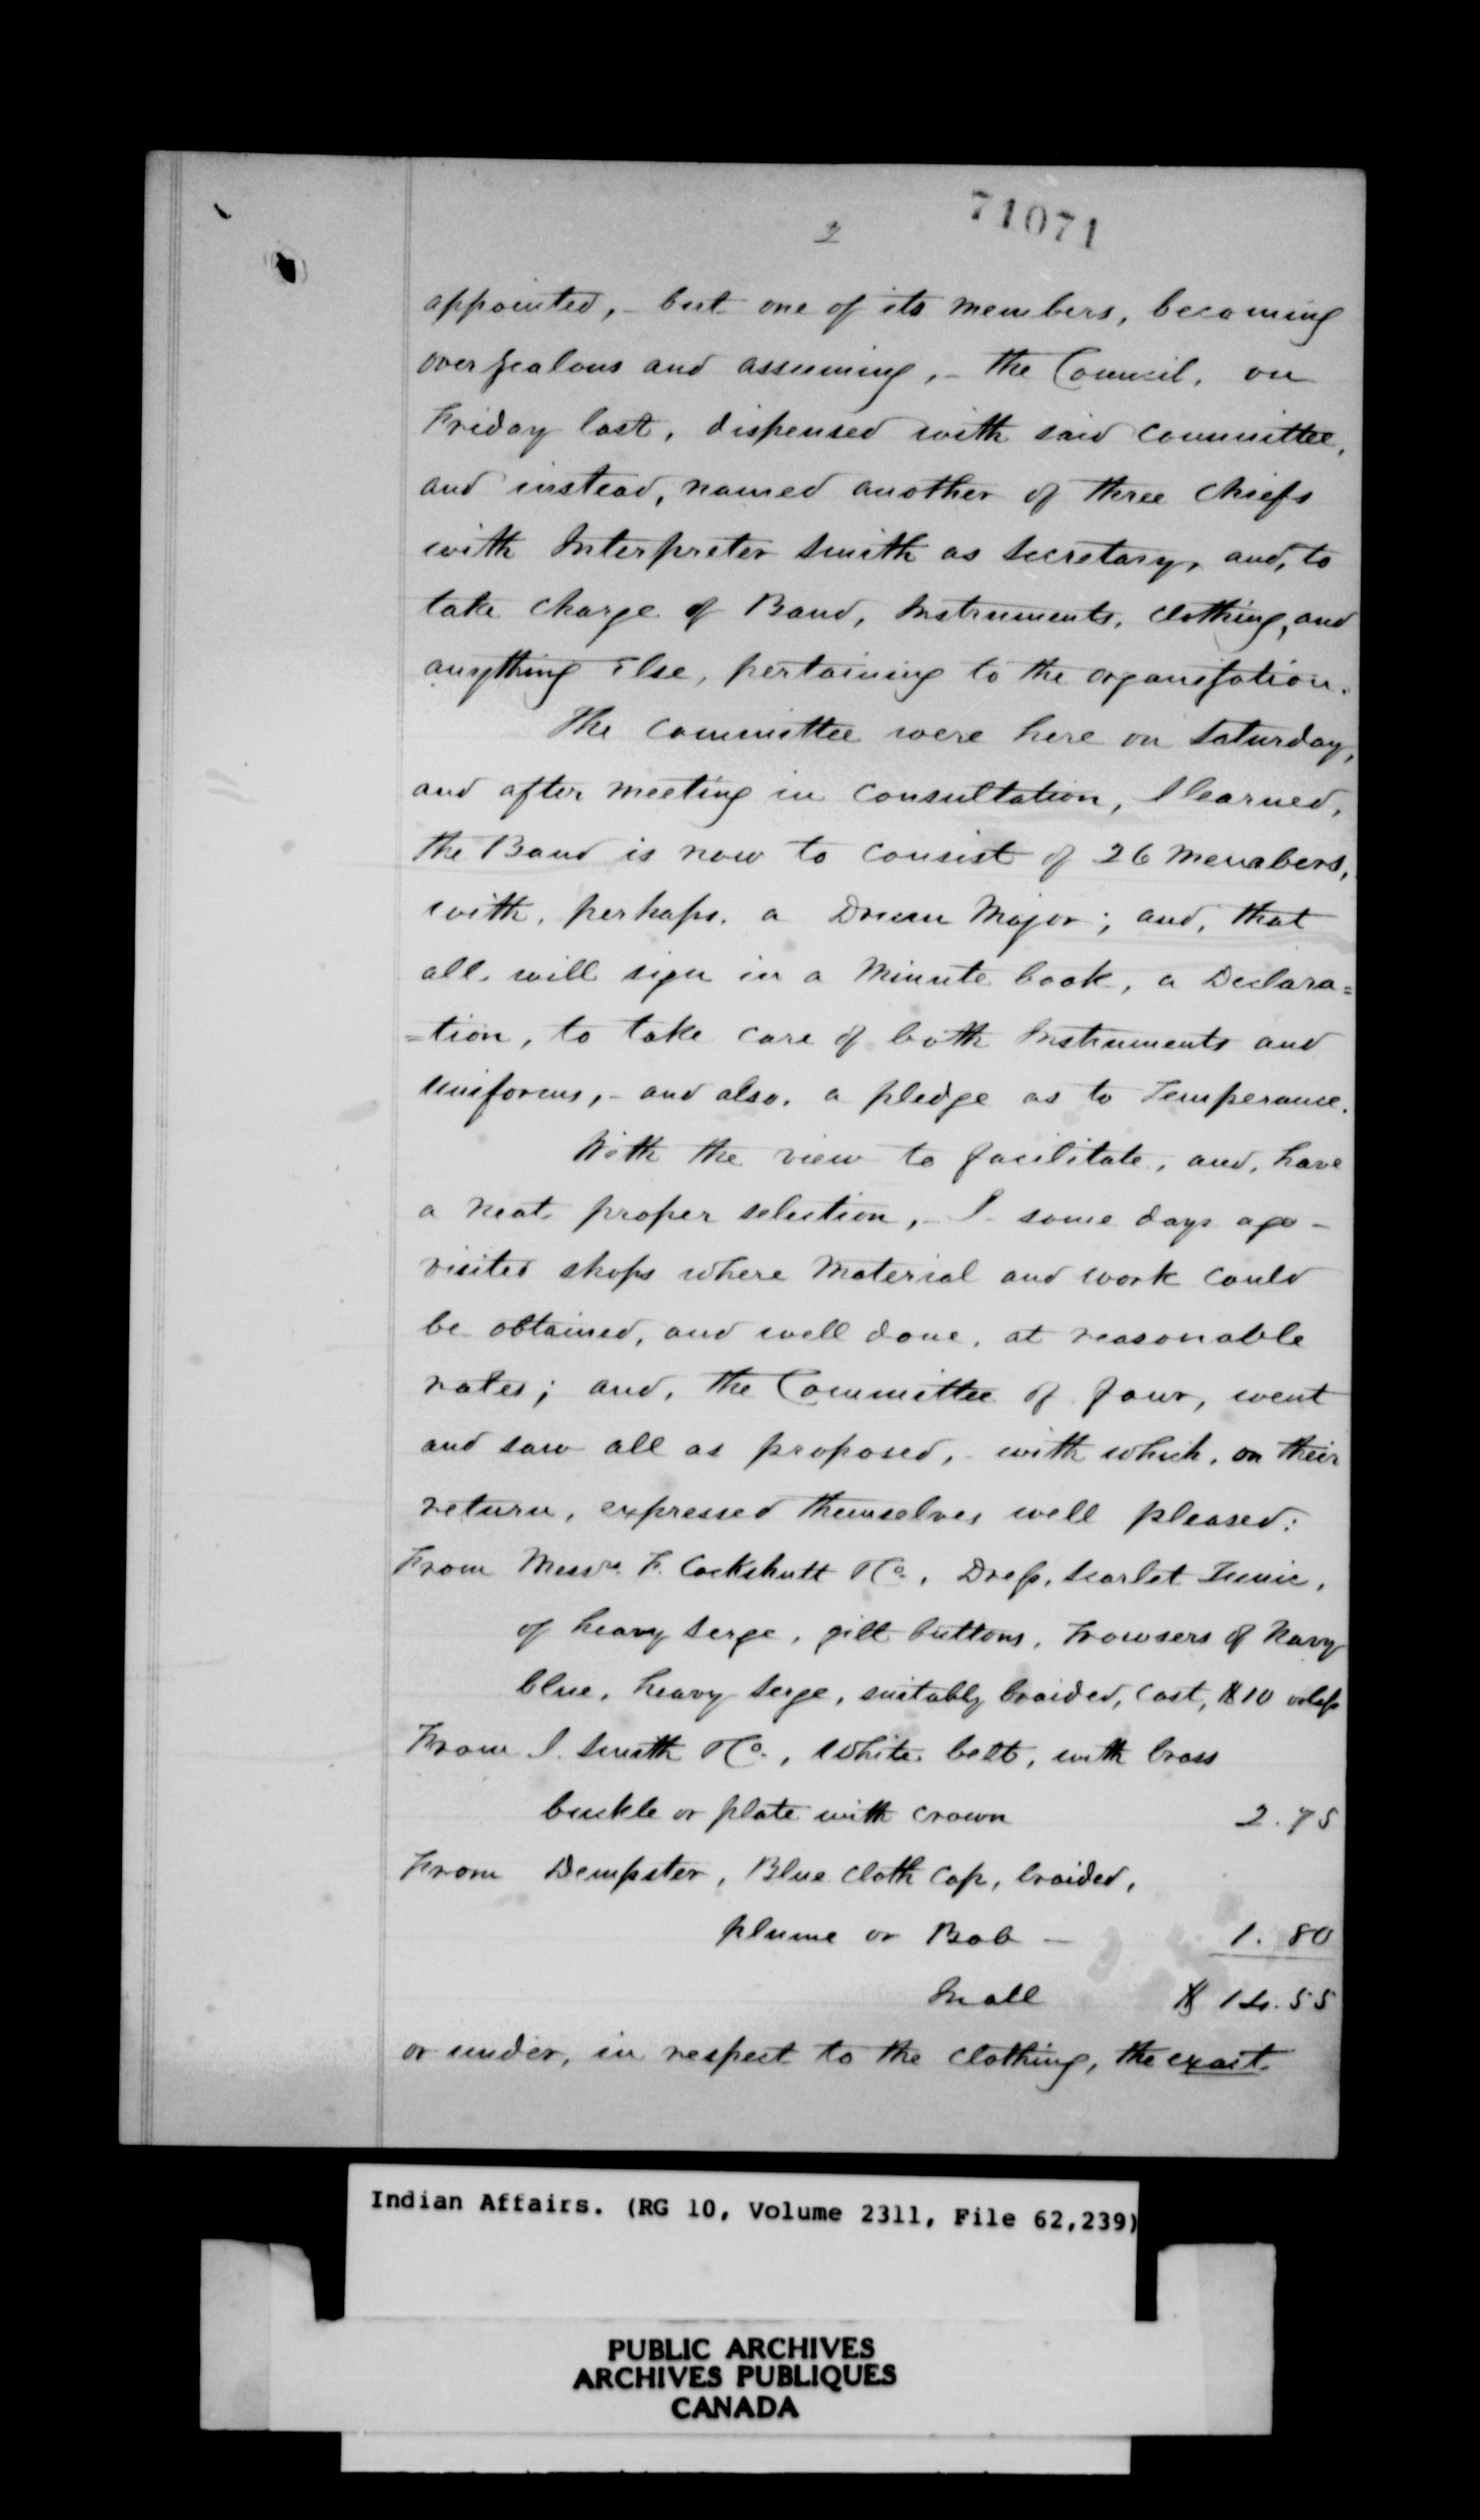 71071
2
appointed, - but one of its members, becoming
over zealous and assuming, - the Council, on
Friday last, dispensed with said committee,
and instead, named another of three chiefs
with Interpreter Smith as Secretary, and, to
take charge of Band, Instruments, clothing, and
anything else, pertaining to the organization.
The committee were here on Saturday,
and after meeting in consultation, I learned,
the Band is now to consist of 26 members,
with, perhaps, a Drum Major; and, that
all, will sign in a Minute book, a Declara=
=tion, to take care of both Instruments and
Uniforms, - and also, a pledge as to Temperance.
With the view to facilitate, and, have
a neat proper selection, - I some days ago -
visited shops where Material and work could
be obtained, and well done, at reasonable
rates; and, the Committee of four, went
and saw all as proposed, - with which, on their
return, expressed themselves well pleased:
From Messrs. F. Cockshutt & Co., Dress, Scarlet Tunic,
of heavy serge, gilt buttons, Trowsers of Navy
blue, heavy serge, suitably braided, Cost, $10 or less
From I. Smith & Co., White belt, with brass
buckle or plate with crown 2.75
From Dempster, Blue cloth Cap, braided,
plume or Bob — 1.80
In all $ 14.55
or under, in respect to the clothing, the exact
Indian Affairs. (RG 10, Volume 2311, File 62,239)
PUBLIC ARCHIVES
ARCHIVES PUBLIQUES
CANADA